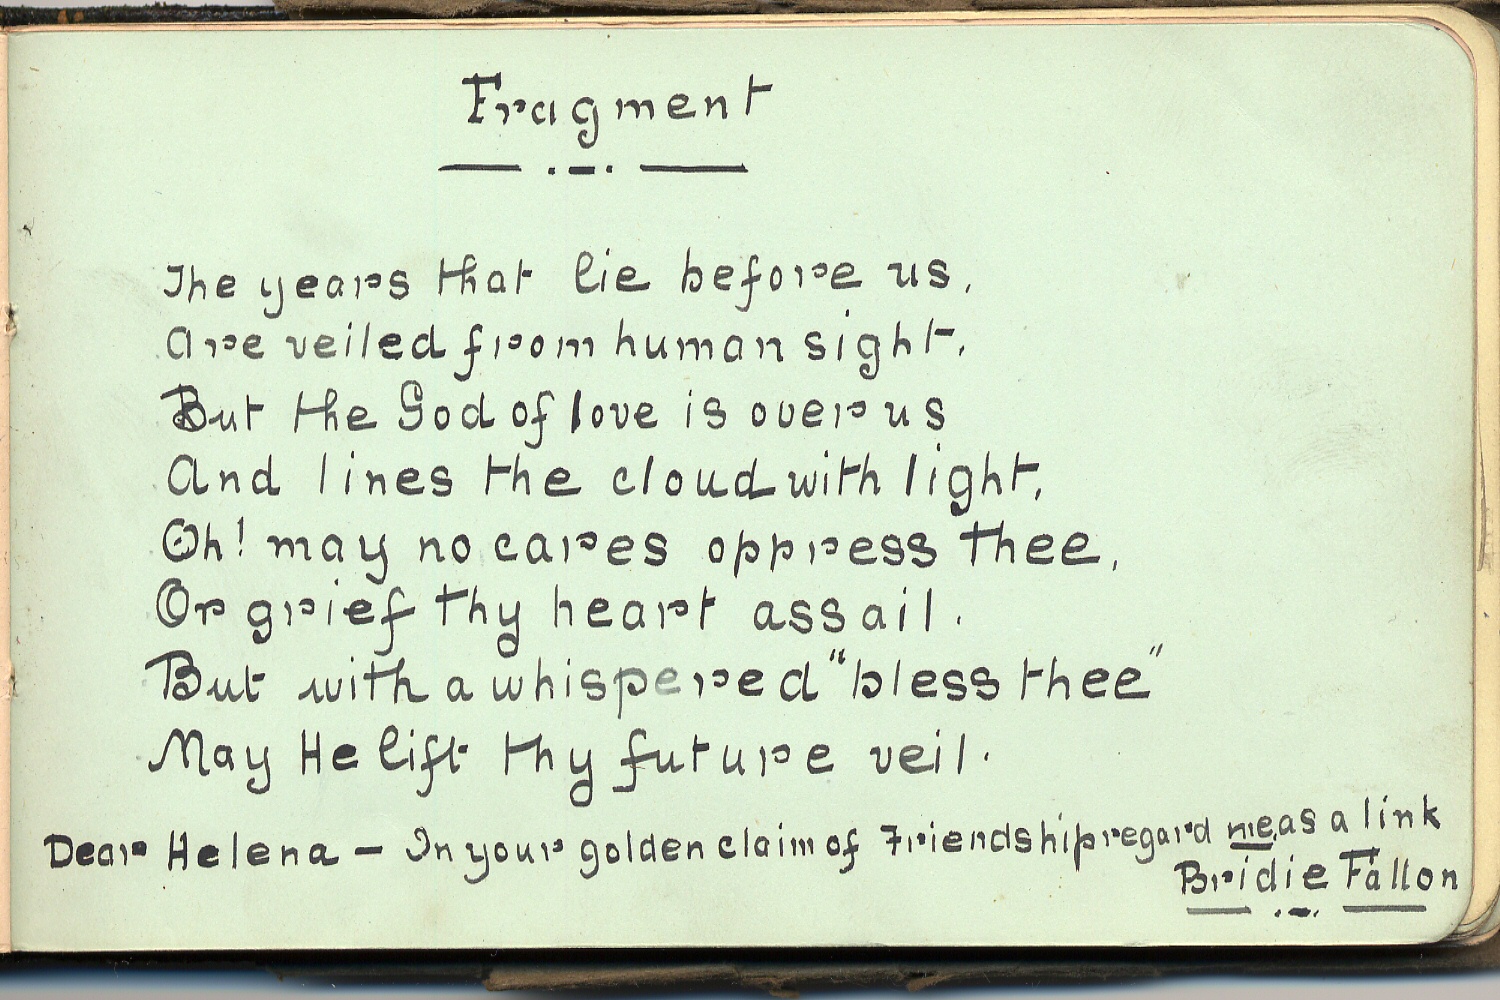 Fragment
The years that lie before us,
Are veiled from human sight,
But the God of love is over us
And lines the cloud with light,
Oh! may no cares oppress thee,
Or grief thy heart assail.
But with a whispered "bless thee"
May He lift thy future veil.
Dear Helena - In your golden claim of Friendship regard me as a link
Bridie Fallon